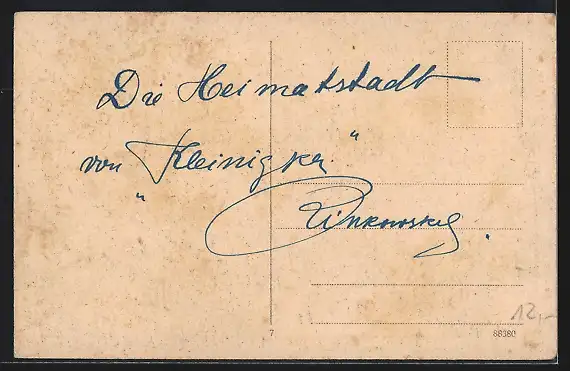 Die Heimatstadt
von „Kleinigker"
Zinkowsky.
12,-
7
88380